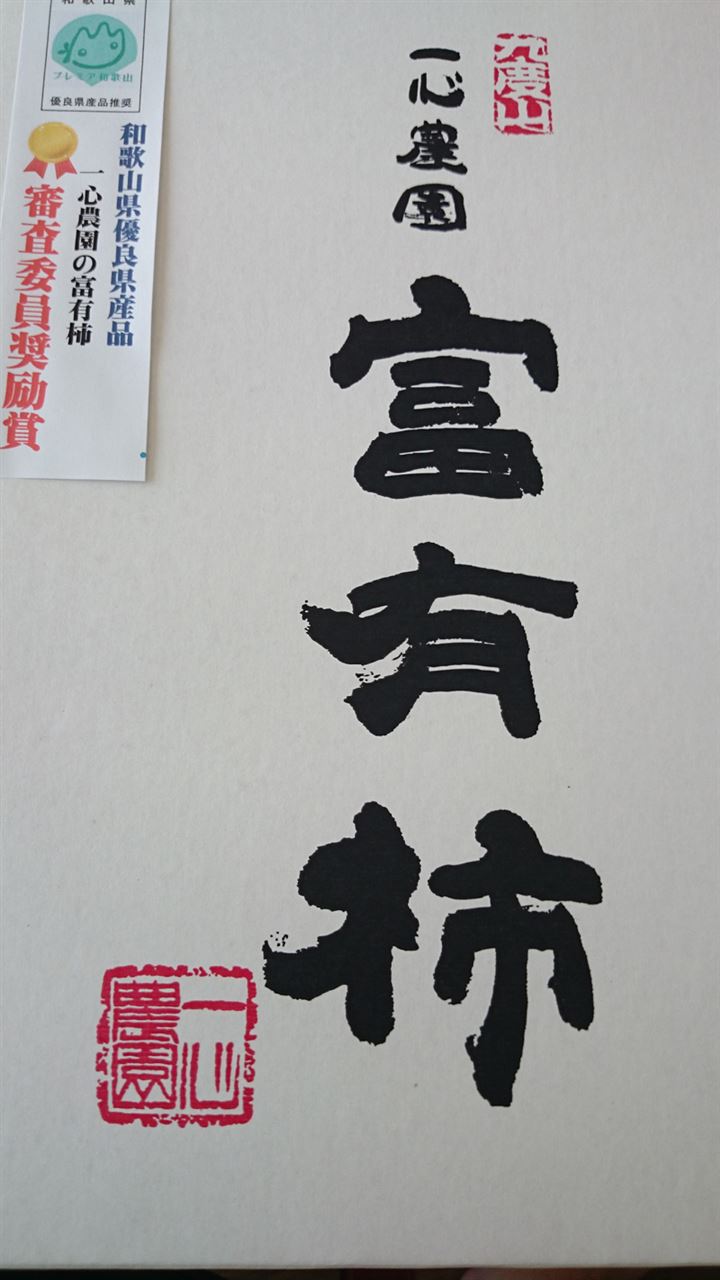 九度山
一心農園
富有柿
一心
農園
和歌山県
プレミア和歌山
優良県産品推奨
和歌山県優良県産品
一心農園の富有柿
審査委員奨励賞